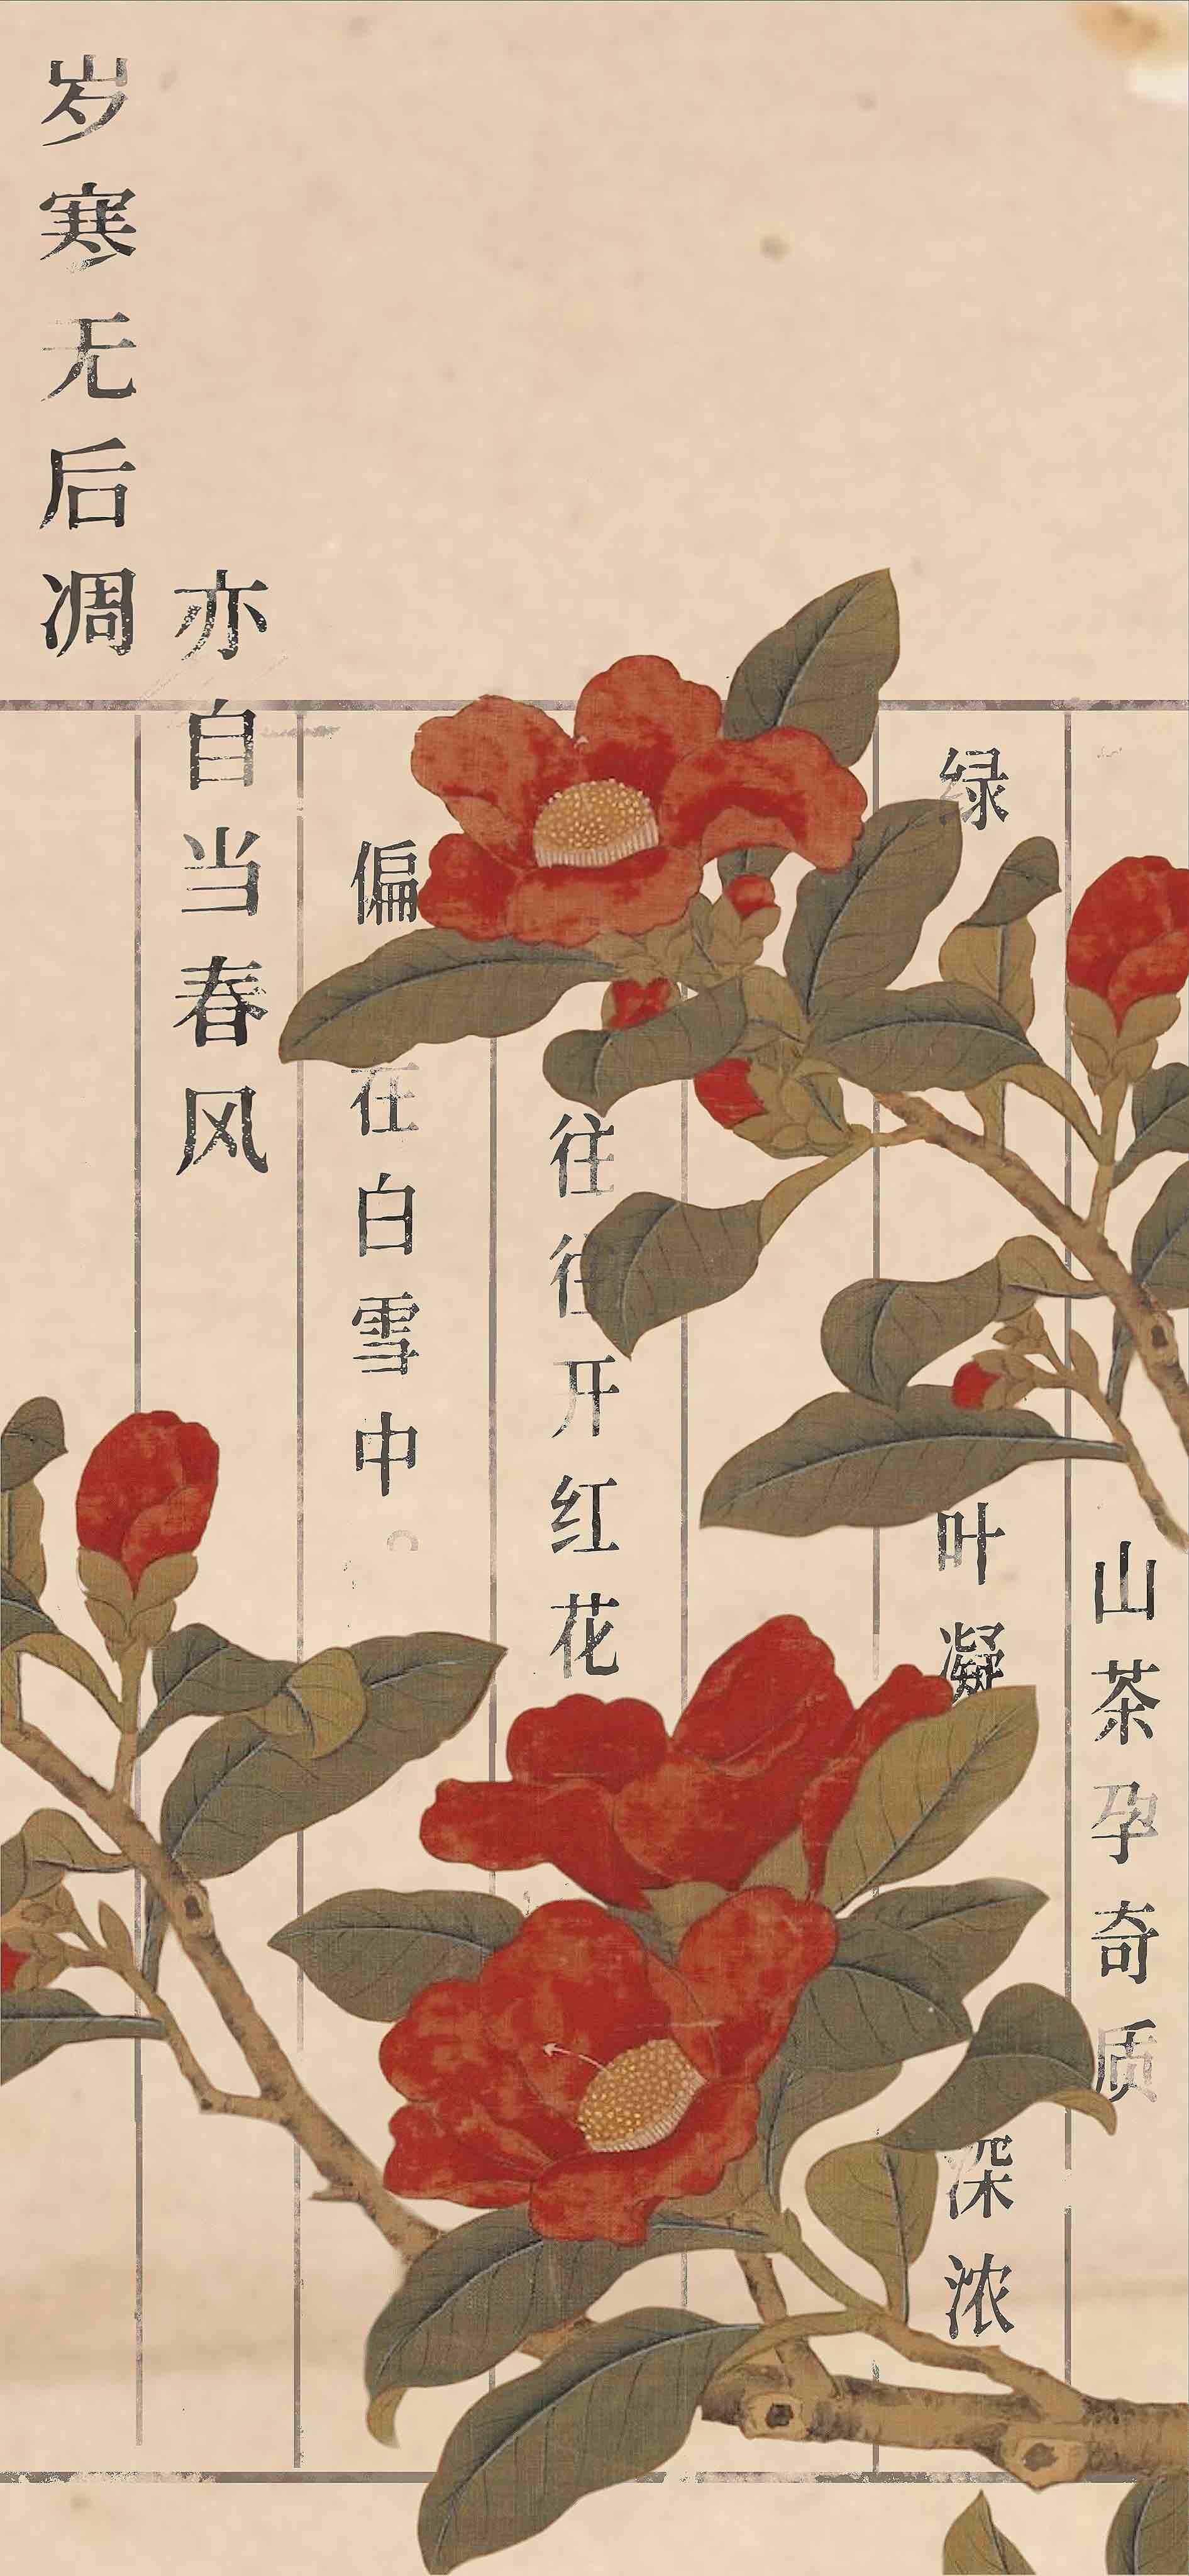 山茶孕奇质
绿叶凝深浓
往往开红花
偏在白雪中。
亦自当春风
岁寒无后凋